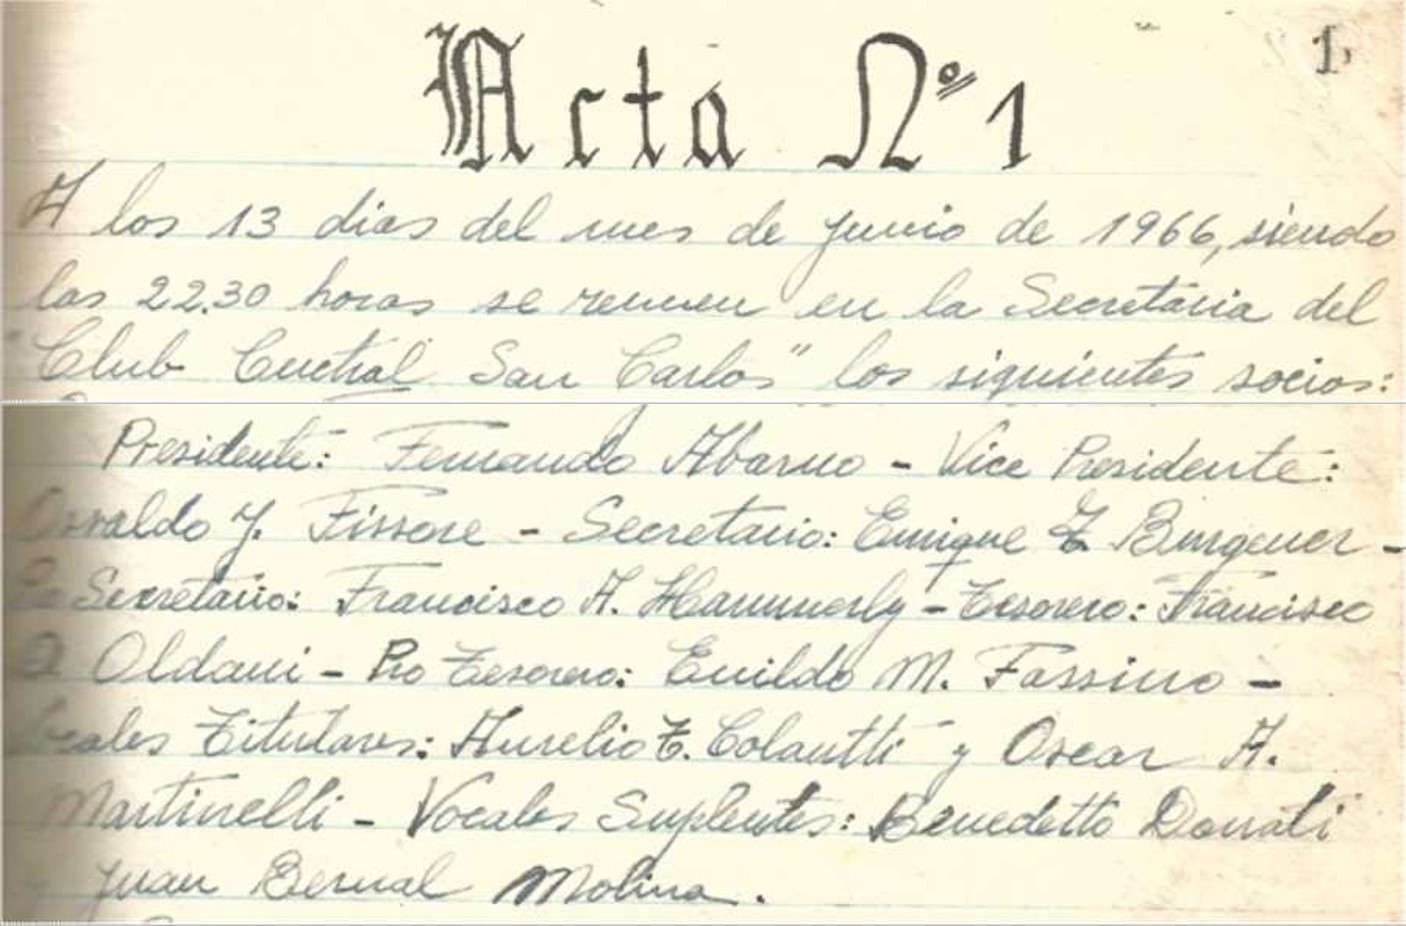 Acta Nº 1
1
A los 13 dias del mes de junio de 1966, siendo
las 22.30 horas se reunen en la Secretaria del
"Club Central San Carlos" los siguientes socios:
Presidente: Fernando Abarno - Vice Presidente:
Osvaldo J. Fissore - Secretario: Enrique Burgener -
Secretario: Francisco A. Hammerly - Tesorero: Francisco
Oldani - Pro Tesorero: Enildo M. Fassino -
Vocales Titulares: Aurelio T. Colautti y Oscar A.
Martinelli - Vocales Suplentes: Benedetto Donati
y Juan Bernal Molina.